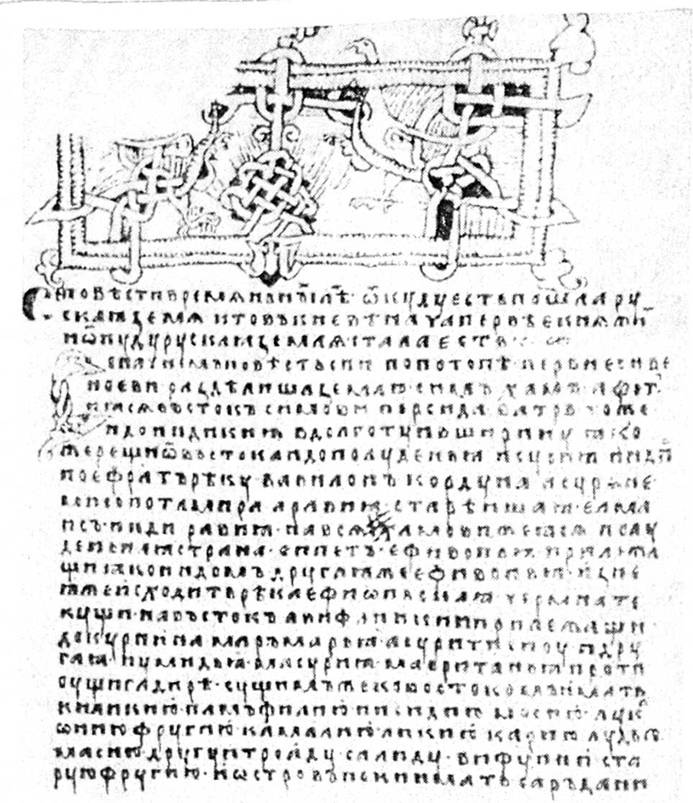 Се повѣсти времѧньнꙑх лѣт ѿкуду есть пошла ру
скаꙗ земѧ кто въ києвѣ нача первѣє кнѧжи
и ѿкуду рускаꙗ землѧ стала єсть
се начнемъ повѣсть сии по потопѣ первиє снве
ноєви раздѣлиша землю симъ хамъ афет
ꙗсѧ въстокъ симови персида ватрь тоже
и до индикиꙗ в долготу и въ ширину ꙗко
же рещи ѿ въстока и до полуденьꙗ и суриꙗ и инди
по єфратъ рѣку вавилонъ кордуна асурѧне
месопотамира аравиꙗ старѣишаꙗ єлма
ись инди равиꙗ на всѧ
деньнаꙗ страна єгипетъ єфивопьꙗ прилежа
щиꙗ ко индомъ другаꙗ же єфивопьꙗ из не
ꙗже исходить рѣка єфиѡпьскаꙗ чермна те
куши на въстокъ авифаникии прилежаши
до куриниꙗ маръмарьꙗ асурити дру
гаꙗ нумидьꙗ масуриꙗ мавританьꙗ проти
сущи гадирѣ сущимъ же къ востокомъ имать
киликию памъфилию писидию мосию лук
ѡнию фругию камалию ликию карию лудью
масию другую троаду салиду вифунию ста
рую фругию и ѡстровъ неки имать саръдани